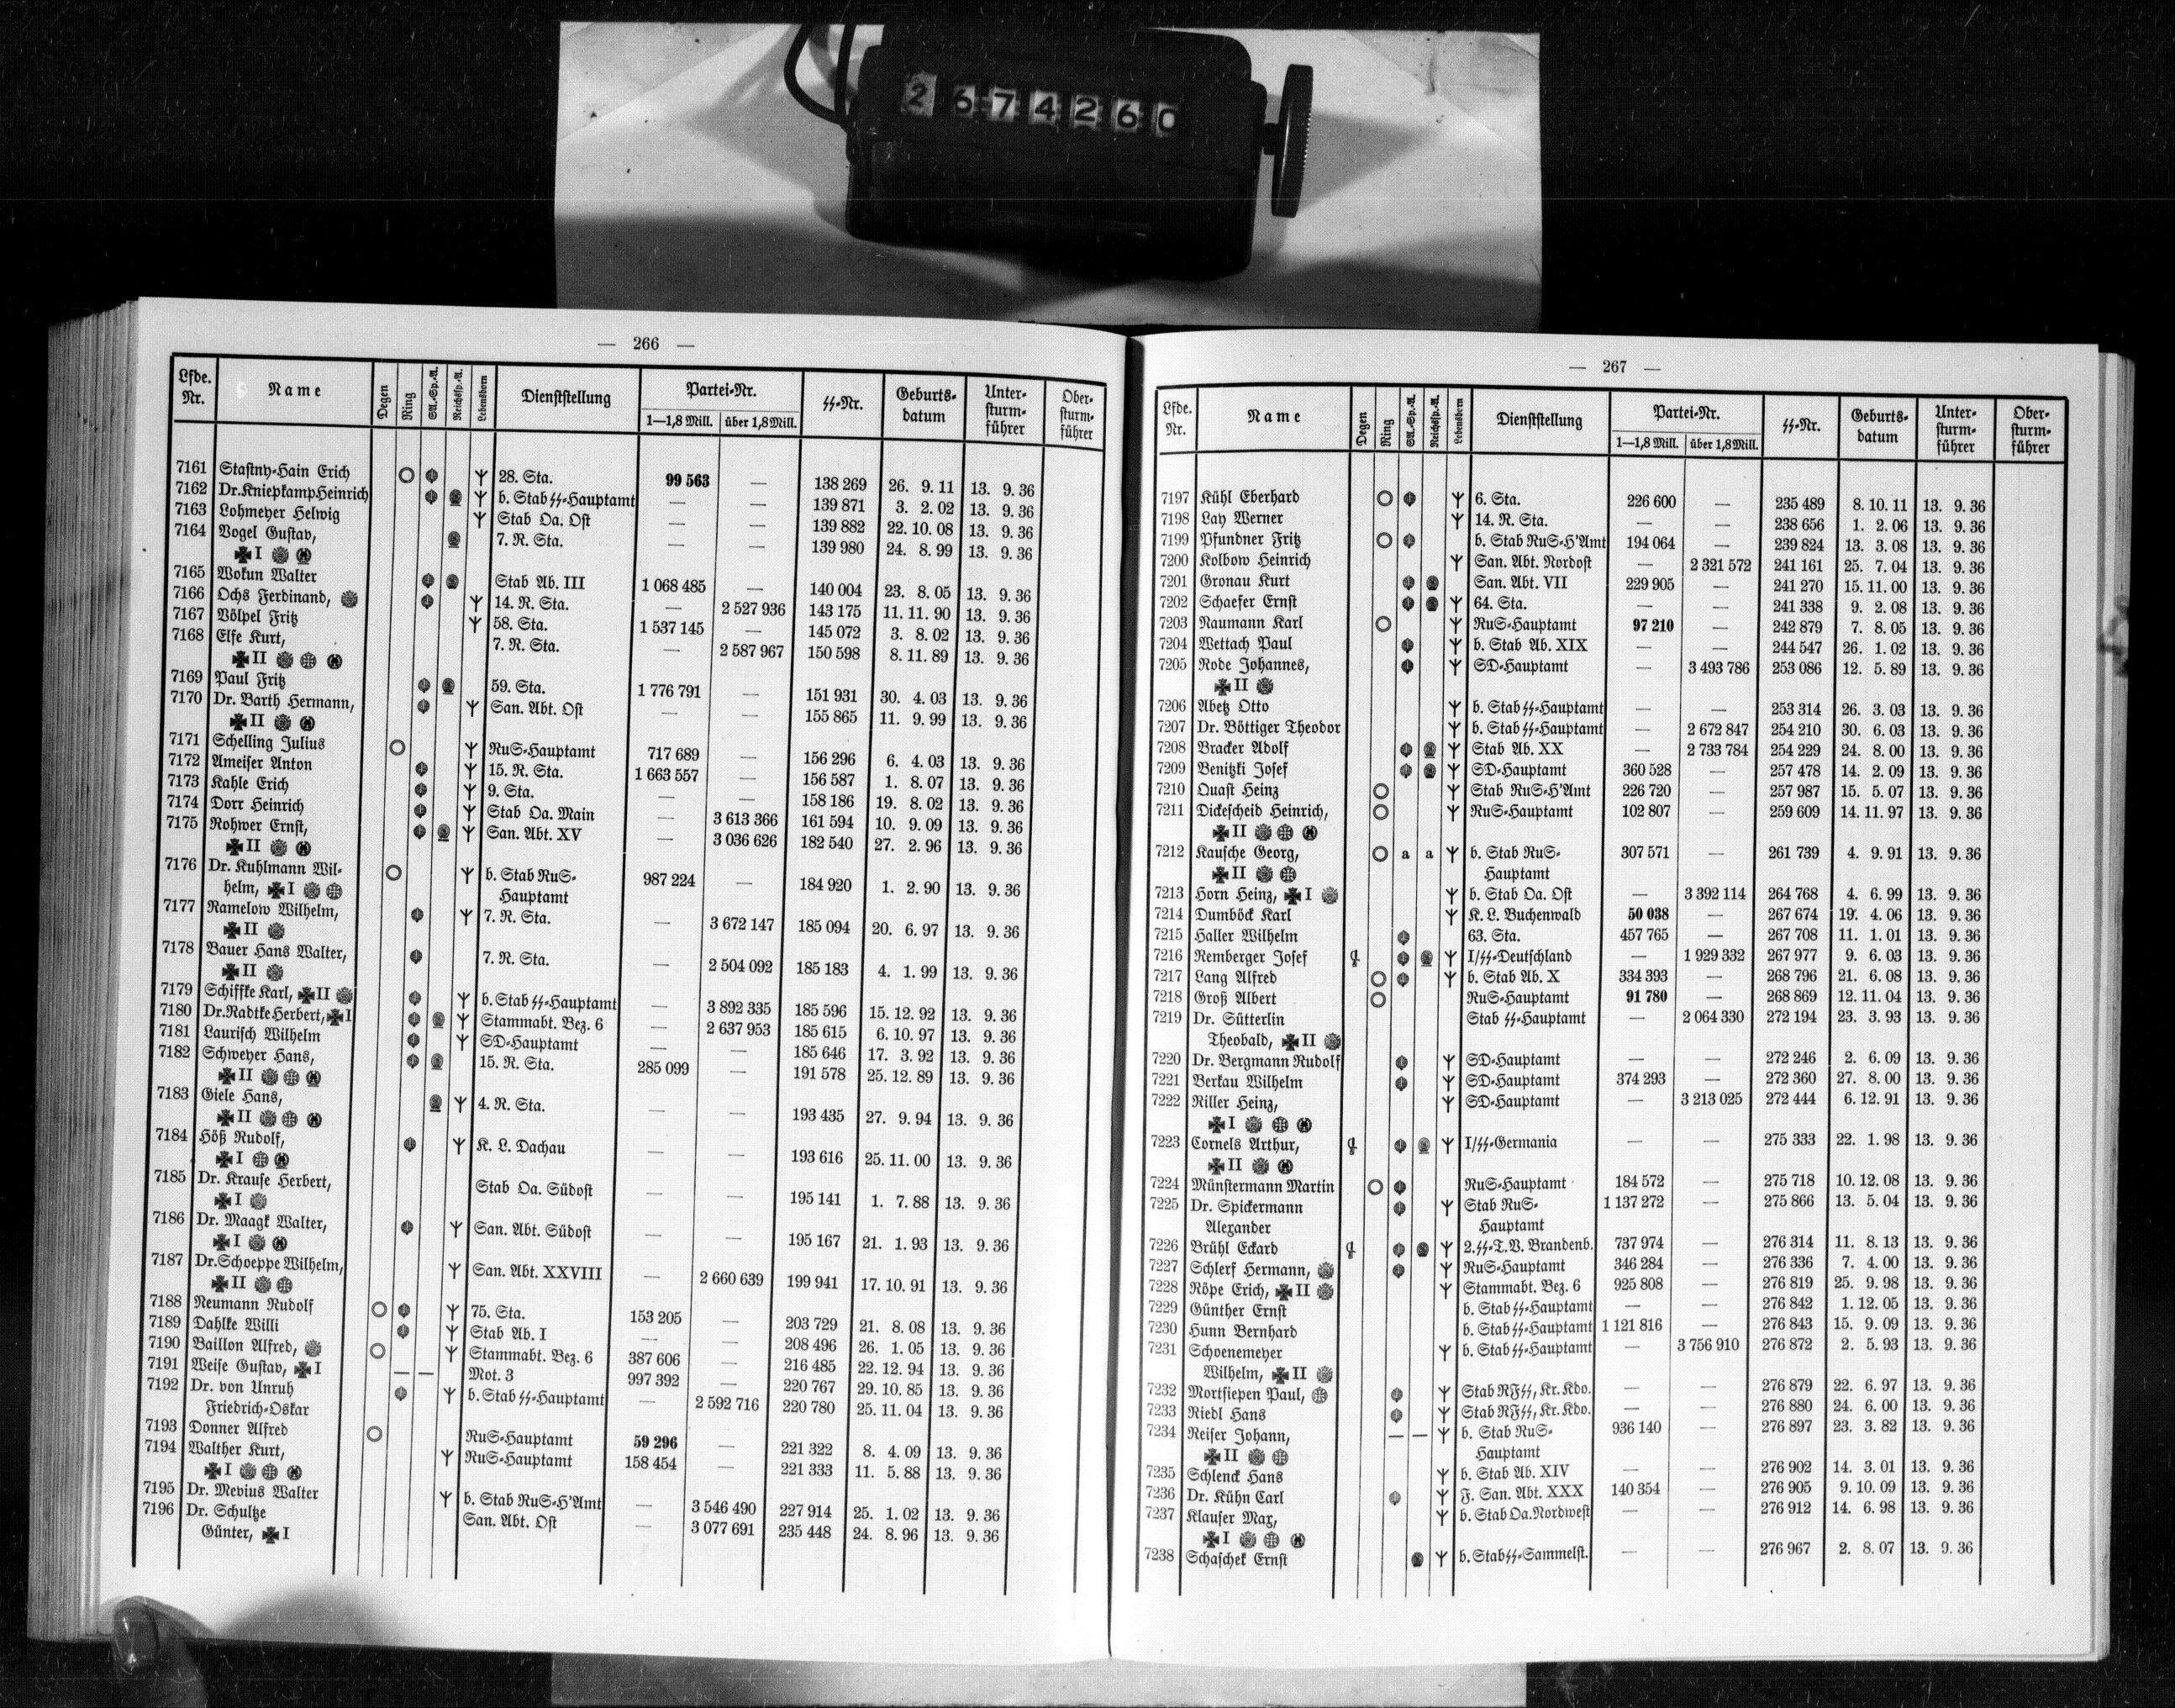 2674260
— 266 —
Lfde. Nr. Name Degen Ring SA.-Sp.-A. Reichssp.-A. Lebensborn Dienststellung Partei-Nr. 1—1,8 Mill. über 1,8 Mill. SS-Nr. Geburts-datum Unter-sturm-führer Ober-sturm-führer
7161 Stastny-Hain Erich 28. Sta. 99 563 — 138 269 26. 9. 11 13. 9. 36
7162 Dr. Kniepkamp Heinrich b. Stab SS-Hauptamt — — 139 871 3. 2. 02 13. 9. 36
7163 Lohmeyer Helwig Stab Oa. Ost — — 139 882 22. 10. 08 13. 9. 36
7164 Vogel Gustav, 7. R. Sta. — — 139 980 24. 8. 99 13. 9. 36
I
7165 Wokun Walter Stab Ab. III 1 068 485 — 140 004 23. 8. 05 13. 9. 36
7166 Ochs Ferdinand, 14. R. Sta. — 2 527 936 143 175 11. 11. 90 13. 9. 36
7167 Völpel Fritz 58. Sta. 1 537 145 — 145 072 3. 8. 02 13. 9. 36
7168 Elfe Kurt, 7. R. Sta. — 2 587 967 150 598 8. 11. 89 13. 9. 36
II
7169 Paul Fritz 59. Sta. 1 776 791 — 151 931 30. 4. 03 13. 9. 36
7170 Dr. Barth Hermann, San. Abt. Ost — — 155 865 11. 9. 99 13. 9. 36
II
7171 Schelling Julius RuS-Hauptamt 717 689 — 156 296 6. 4. 03 13. 9. 36
7172 Ameiser Anton 15. R. Sta. 1 663 557 — 156 587 1. 8. 07 13. 9. 36
7173 Kahle Erich 9. Sta. — — 158 186 19. 8. 02 13. 9. 36
7174 Dorr Heinrich Stab Oa. Main — 3 613 366 161 594 10. 9. 09 13. 9. 36
7175 Rohwer Ernst, San. Abt. XV — 3 036 626 182 540 27. 2. 96 13. 9. 36
II
7176 Dr. Kuhlmann Wil- b. Stab RuS- 987 224 — 184 920 1. 2. 90 13. 9. 36
helm, I Hauptamt
7177 Ramelow Wilhelm, 7. R. Sta. — 3 672 147 185 094 20. 6. 97 13. 9. 36
II
7178 Bauer Hans Walter, 7. R. Sta. — 2 504 092 185 183 4. 1. 99 13. 9. 36
II
7179 Schiffke Karl, II b. Stab SS-Hauptamt — 3 892 335 185 596 15. 12. 92 13. 9. 36
7180 Dr. Radtke Herbert, I Stammabt. Bez. 6 — 2 637 953 185 615 6. 10. 97 13. 9. 36
7181 Laurisch Wilhelm SD-Hauptamt — — 185 646 17. 3. 92 13. 9. 36
7182 Schweyer Hans, 15. R. Sta. 285 099 — 191 578 25. 12. 89 13. 9. 36
II
7183 Giele Hans, 4. R. Sta. — — 193 435 27. 9. 94 13. 9. 36
II
7184 Höß Rudolf, K. L. Dachau — — 193 616 25. 11. 00 13. 9. 36
I
7185 Dr. Krause Herbert, Stab Oa. Südost — — 195 141 1. 7. 88 13. 9. 36
I
7186 Dr. Maagk Walter, San. Abt. Südost — — 195 167 21. 1. 93 13. 9. 36
I
7187 Dr. Schoeppe Wilhelm, San. Abt. XXVIII — 2 660 639 199 941 17. 10. 91 13. 9. 36
II
7188 Neumann Rudolf 75. Sta. 153 205 — 203 729 21. 8. 08 13. 9. 36
7189 Dahlke Willi Stab Ab. I — — 208 496 26. 1. 05 13. 9. 36
7190 Baillon Alfred, Stammabt. Bez. 6 387 606 — 216 485 22. 12. 94 13. 9. 36
7191 Weise Gustav, I — — Mot. 3 997 392 — 220 767 29. 10. 85 13. 9. 36
7192 Dr. von Unruh b. Stab SS-Hauptamt — 2 592 716 220 780 25. 11. 04 13. 9. 36
Friedrich-Oskar
7193 Donner Alfred RuS-Hauptamt 59 296 — 221 322 8. 4. 09 13. 9. 36
7194 Walther Kurt, RuS-Hauptamt 158 454 — 221 333 11. 5. 88 13. 9. 36
I
7195 Dr. Mevius Walter b. Stab RuS-H'Amt — 3 546 490 227 914 25. 1. 02 13. 9. 36
7196 Dr. Schultze San. Abt. Ost — 3 077 691 235 448 24. 8. 96 13. 9. 36
Günter, I
— 267 —
Lfde. Nr. Name Degen Ring SA.-Sp.-A. Reichssp.-A. Lebensborn Dienststellung Partei-Nr. 1—1,8 Mill. über 1,8 Mill. SS-Nr. Geburts-datum Unter-sturm-führer Ober-sturm-führer
7197 Kühl Eberhard 6. Sta. 226 600 — 235 489 8. 10. 11 13. 9. 36
7198 Lay Werner 14. R. Sta. — — 238 656 1. 2. 06 13. 9. 36
7199 Pfundner Fritz b. Stab RuS-H'Amt 194 064 — 239 824 13. 3. 08 13. 9. 36
7200 Kolbow Heinrich San. Abt. Nordost — 2 321 572 241 161 25. 7. 04 13. 9. 36
7201 Gronau Kurt San. Abt. VII 229 905 — 241 270 15. 11. 00 13. 9. 36
7202 Schaefer Ernst 64. Sta. — — 241 338 9. 2. 08 13. 9. 36
7203 Naumann Karl RuS-Hauptamt 97 210 — 242 879 7. 8. 05 13. 9. 36
7204 Wettach Paul b. Stab Ab. XIX — — 244 547 26. 1. 02 13. 9. 36
7205 Rode Johannes, SD-Hauptamt — 3 493 786 253 086 12. 5. 89 13. 9. 36
II
7206 Abetz Otto b. Stab SS-Hauptamt — — 253 314 26. 3. 03 13. 9. 36
7207 Dr. Böttiger Theodor b. Stab SS-Hauptamt — 2 672 847 254 210 30. 6. 03 13. 9. 36
7208 Bracker Adolf Stab Ab. XX — 2 733 784 254 229 24. 8. 00 13. 9. 36
7209 Benitzki Josef SD-Hauptamt 360 528 — 257 478 14. 2. 09 13. 9. 36
7210 Quast Heinz Stab RuS-H'Amt 226 720 — 257 987 15. 5. 07 13. 9. 36
7211 Dickescheid Heinrich, RuS-Hauptamt 102 807 — 259 609 14. 11. 97 13. 9. 36
II
7212 Kausche Georg, a a b. Stab RuS- 307 571 — 261 739 4. 9. 91 13. 9. 36
II Hauptamt
7213 Horn Heinz, I b. Stab Oa. Ost — 3 392 114 264 768 4. 6. 99 13. 9. 36
7214 Dumböck Karl K. L. Buchenwald 50 038 — 267 674 19. 4. 06 13. 9. 36
7215 Haller Wilhelm 63. Sta. 457 765 — 267 708 11. 1. 01 13. 9. 36
7216 Remberger Josef I/SS-Deutschland — 1 929 332 267 977 9. 6. 03 13. 9. 36
7217 Lang Alfred b. Stab Ab. X 334 393 — 268 796 21. 6. 08 13. 9. 36
7218 Groß Albert RuS-Hauptamt 91 780 — 268 869 12. 11. 04 13. 9. 36
7219 Dr. Sütterlin Stab SS-Hauptamt — 2 064 330 272 194 23. 3. 93 13. 9. 36
Theobald, II
7220 Dr. Bergmann Rudolf SD-Hauptamt — — 272 246 2. 6. 09 13. 9. 36
7221 Berkau Wilhelm SD-Hauptamt 374 293 — 272 360 27. 8. 00 13. 9. 36
7222 Riller Heinz, SD-Hauptamt — 3 213 025 272 444 6. 12. 91 13. 9. 36
I
7223 Cornels Arthur, I/SS-Germania — — 275 333 22. 1. 98 13. 9. 36
II
7224 Münstermann Martin RuS-Hauptamt 184 572 — 275 718 10. 12. 08 13. 9. 36
7225 Dr. Spickermann Stab RuS- 1 137 272 — 275 866 13. 5. 04 13. 9. 36
Alexander Hauptamt
7226 Brühl Eckard 2.SS-T.V. Brandenb. 737 974 — 276 314 11. 8. 13 13. 9. 36
7227 Schlerf Hermann, RuS-Hauptamt 346 284 — 276 336 7. 4. 00 13. 9. 36
7228 Röpe Erich, II Stammabt. Bez. 6 925 808 — 276 819 25. 9. 98 13. 9. 36
7229 Günther Ernst b. Stab SS-Hauptamt — — 276 842 1. 12. 05 13. 9. 36
7230 Hunn Bernhard b. Stab SS-Hauptamt 1 121 816 — 276 843 15. 9. 09 13. 9. 36
7231 Schoenemeyer b. Stab SS-Hauptamt — 3 756 910 276 872 2. 5. 93 13. 9. 36
Wilhelm, II
7232 Mortsiepen Paul, Stab RFSS, Kr. Kdo. — — 276 879 22. 6. 97 13. 9. 36
7233 Riedl Hans Stab RFSS, Kr. Kdo. — — 276 880 24. 6. 00 13. 9. 36
7234 Reiser Johann, — — b. Stab RuS- 936 140 — 276 897 23. 3. 82 13. 9. 36
II Hauptamt
7235 Schlenck Hans b. Stab Ab. XIV — — 276 902 14. 3. 01 13. 9. 36
7236 Dr. Kühn Carl F. San. Abt. XXX 140 354 — 276 905 9. 10. 09 13. 9. 36
7237 Klauser Max, b. Stab Oa. Nordwest — — 276 912 14. 6. 98 13. 9. 36
I
7238 Schaschek Ernst b. Stab SS-Sammelst. — — 276 967 2. 8. 07 13. 9. 36